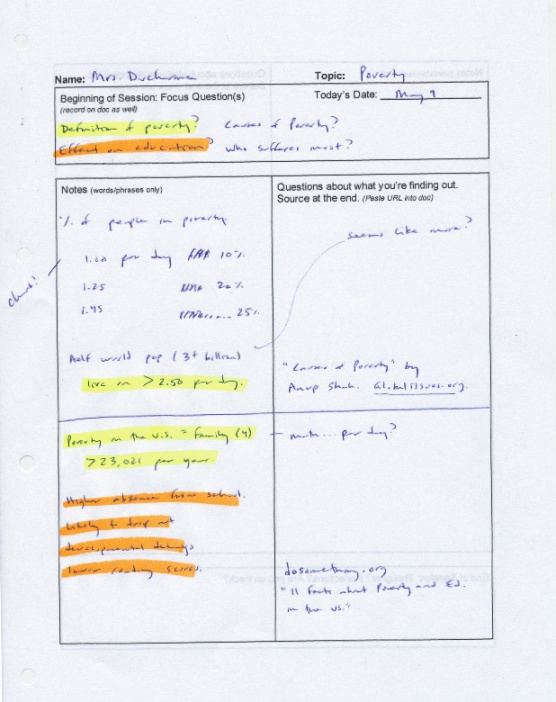 Name: Mrs. Ducharme Topic: Poverty
Beginning of Session: Focus Question(s) Today's Date: May 9
(record on doc as well)
Definition of poverty? Causes of Poverty?
Effect on education? Who suffers most?
Notes (words/phrases only)
% of people in poverty
1.00 per day 10%.
1.25 20%.
1.45 25%.
chart!
Half world pop (3+ billion)
live on > 2.50 per day.
Poverty in the U.S. = Family (4)
>23,021 per year.
Higher absence from school.
Likely to drop out
developmental delays
lower reading scores.
Questions about what you're finding out.
Source at the end. (Paste URL into doc)
seems like more?
"Causes of Poverty" by
Anup Shah. Globalissues.org.
math... per day?
dosomething.org
"11 Facts about Poverty and Ed.
in the US."